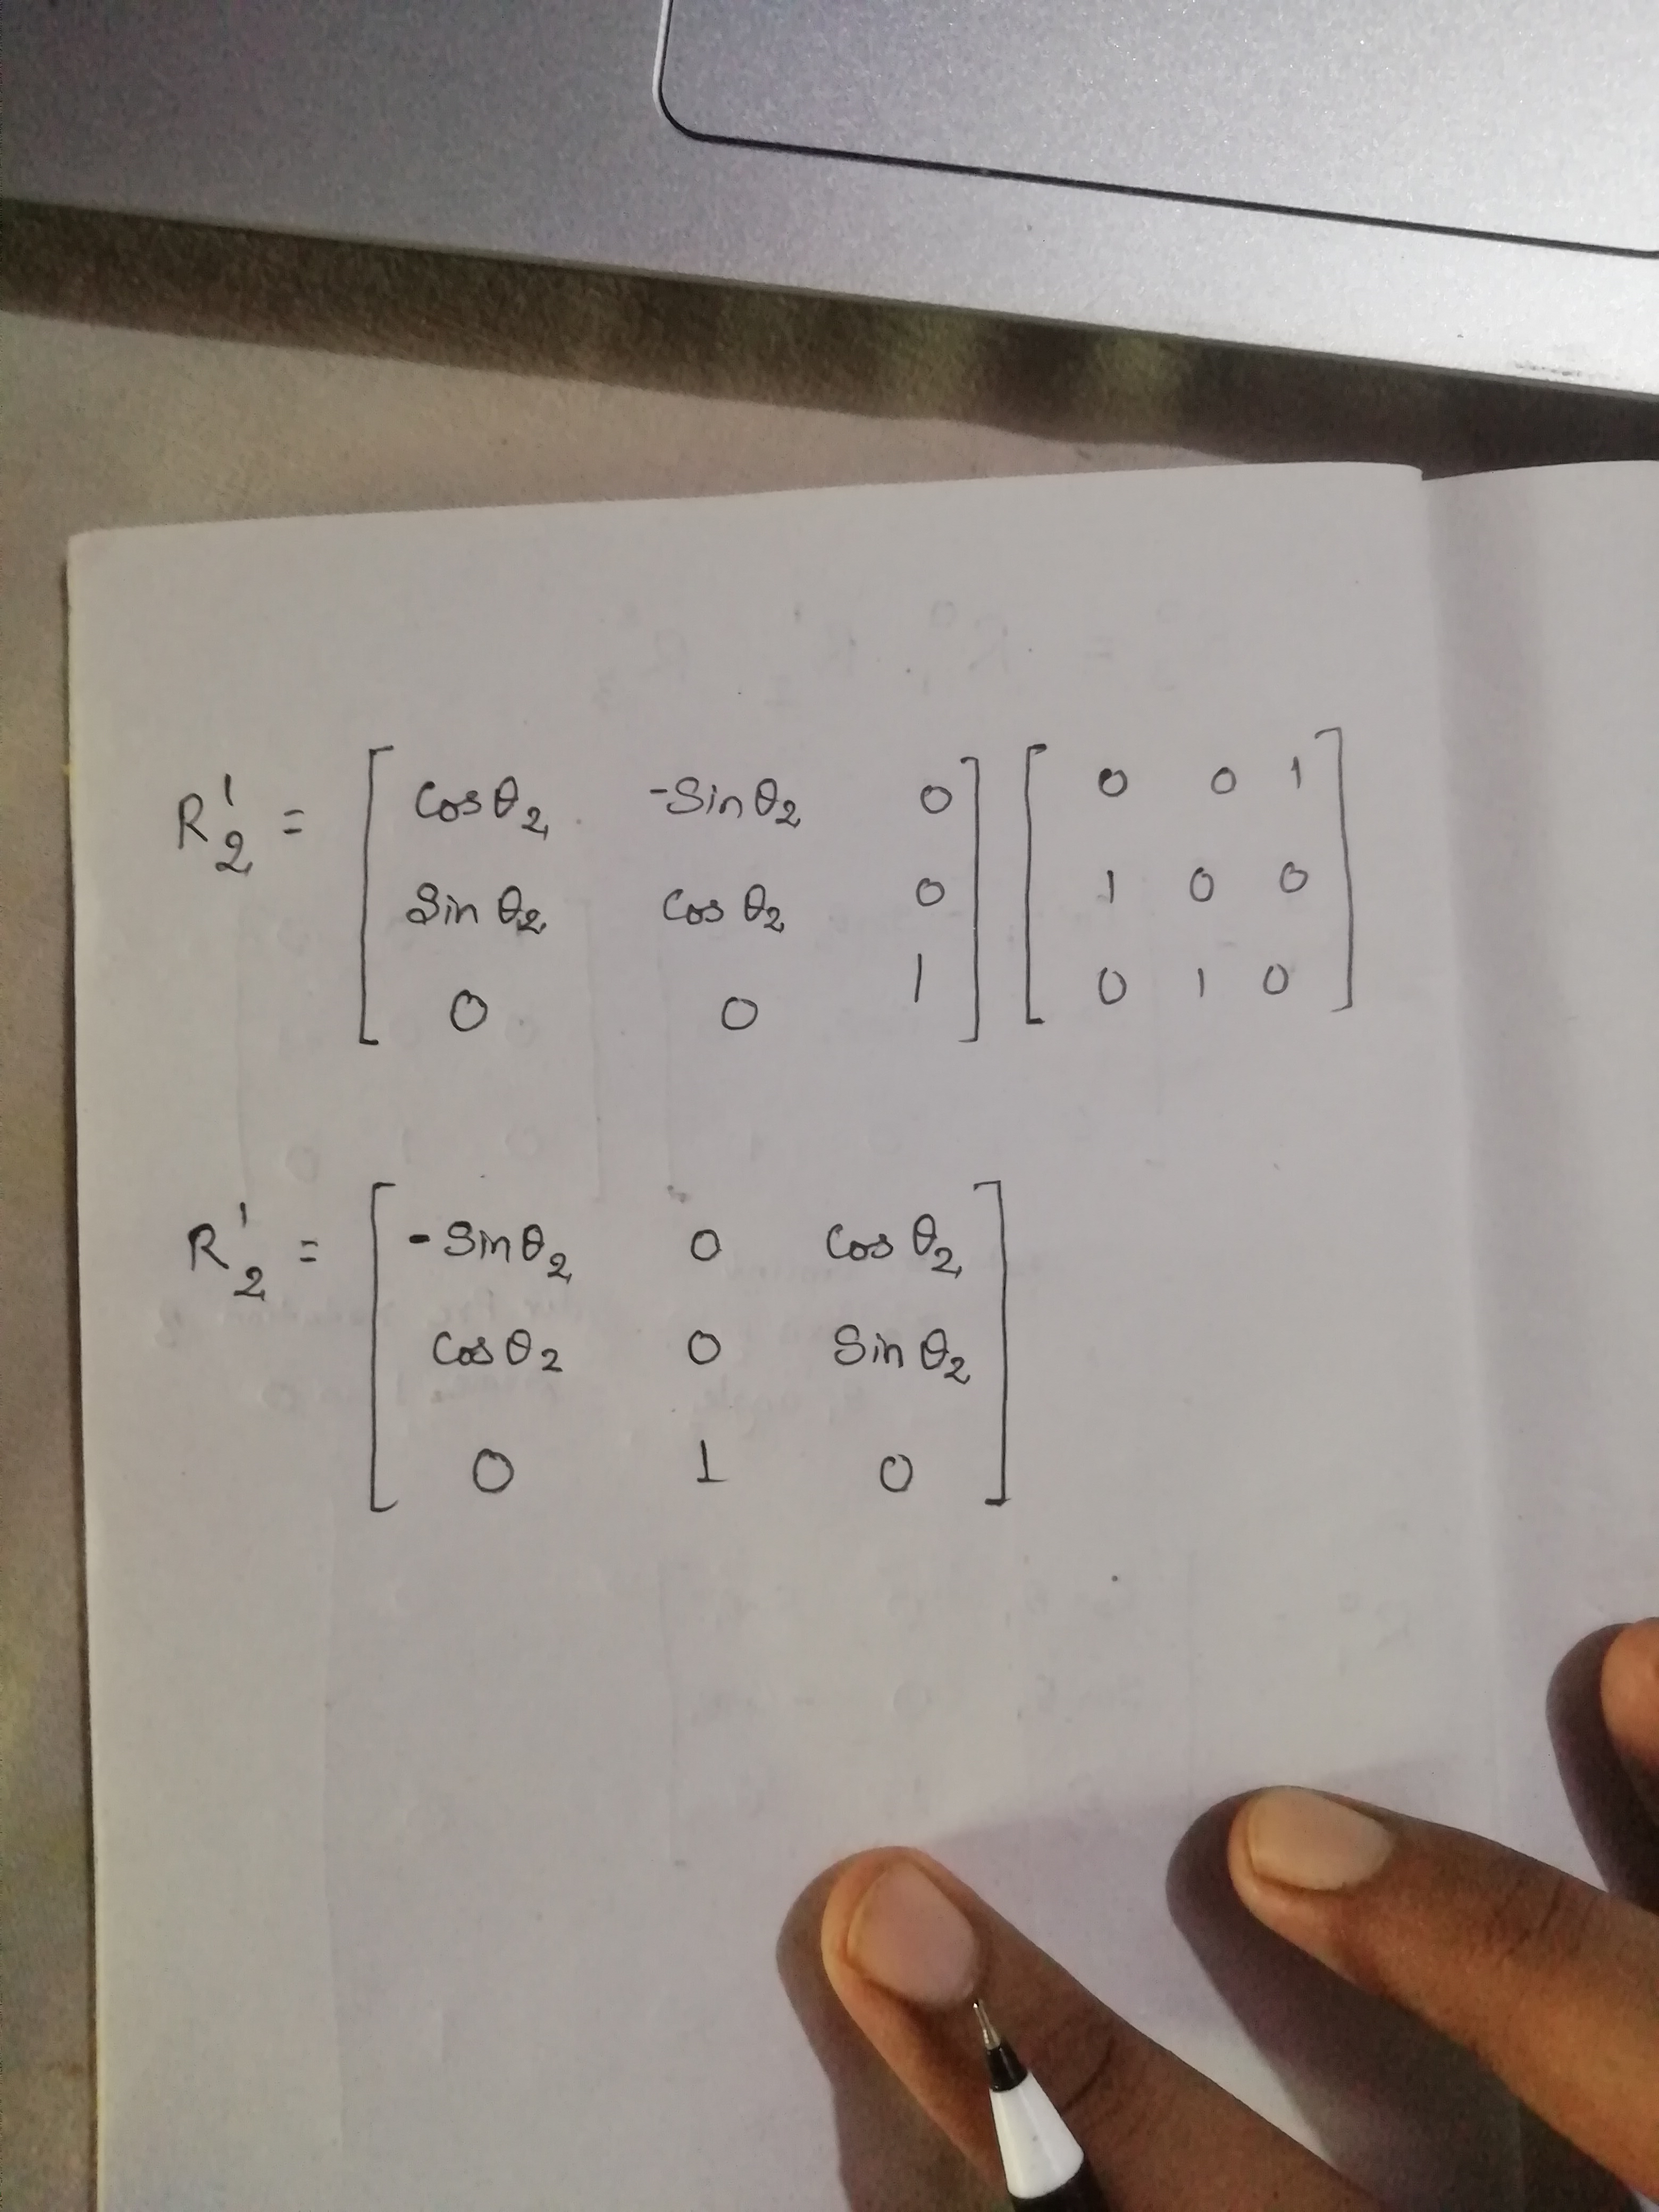 R¹₂ = [ Cosθ₂ -Sinθ₂ 0 ] [ 0 0 1 ]
[ Sinθ₂ Cosθ₂ 0 ] [ 1 0 0 ]
[ 0 0 1 ] [ 0 1 0 ]
R¹₂ = [ -Sinθ₂ 0 Cosθ₂ ]
[ Cosθ₂ 0 Sinθ₂ ]
[ 0 1 0 ]